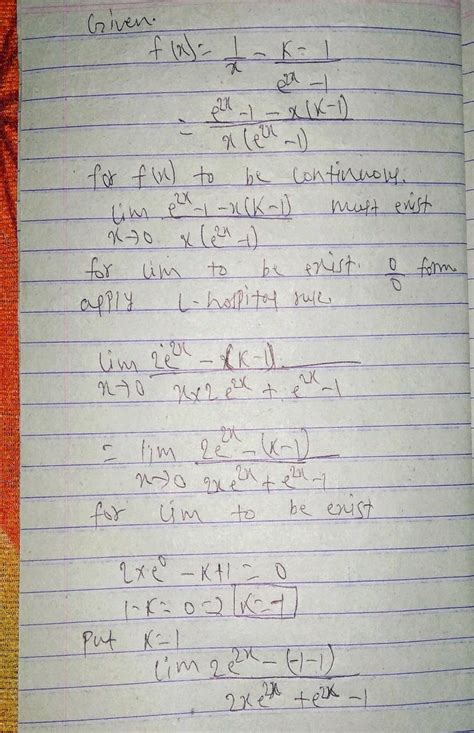 Given.
f(x) = 1/x - K = 1/(e^2x - 1)
= (e^2x - 1 - x(K-1))/(x(e^2x - 1))
for f(x) to be continuous.
lim x→0 (e^2x - 1 - x(K-1))/(x(e^2x - 1)) must exist
for lim to be exist. 0/0 form
apply L-hospital rule
lim x→0 (2e^2x - (K-1))/(x×2e^2x + e^2x - 1)
= lim x→0 (2e^2x - (K-1))/(2xe^2x + e^2x - 1)
for lim to be exist
2×e^0 - K+1 = 0
1-K = 0 =2 K=-1
Put K=1
lim (2e^2x - (-1-1))/(2xe^2x + e^2x - 1)